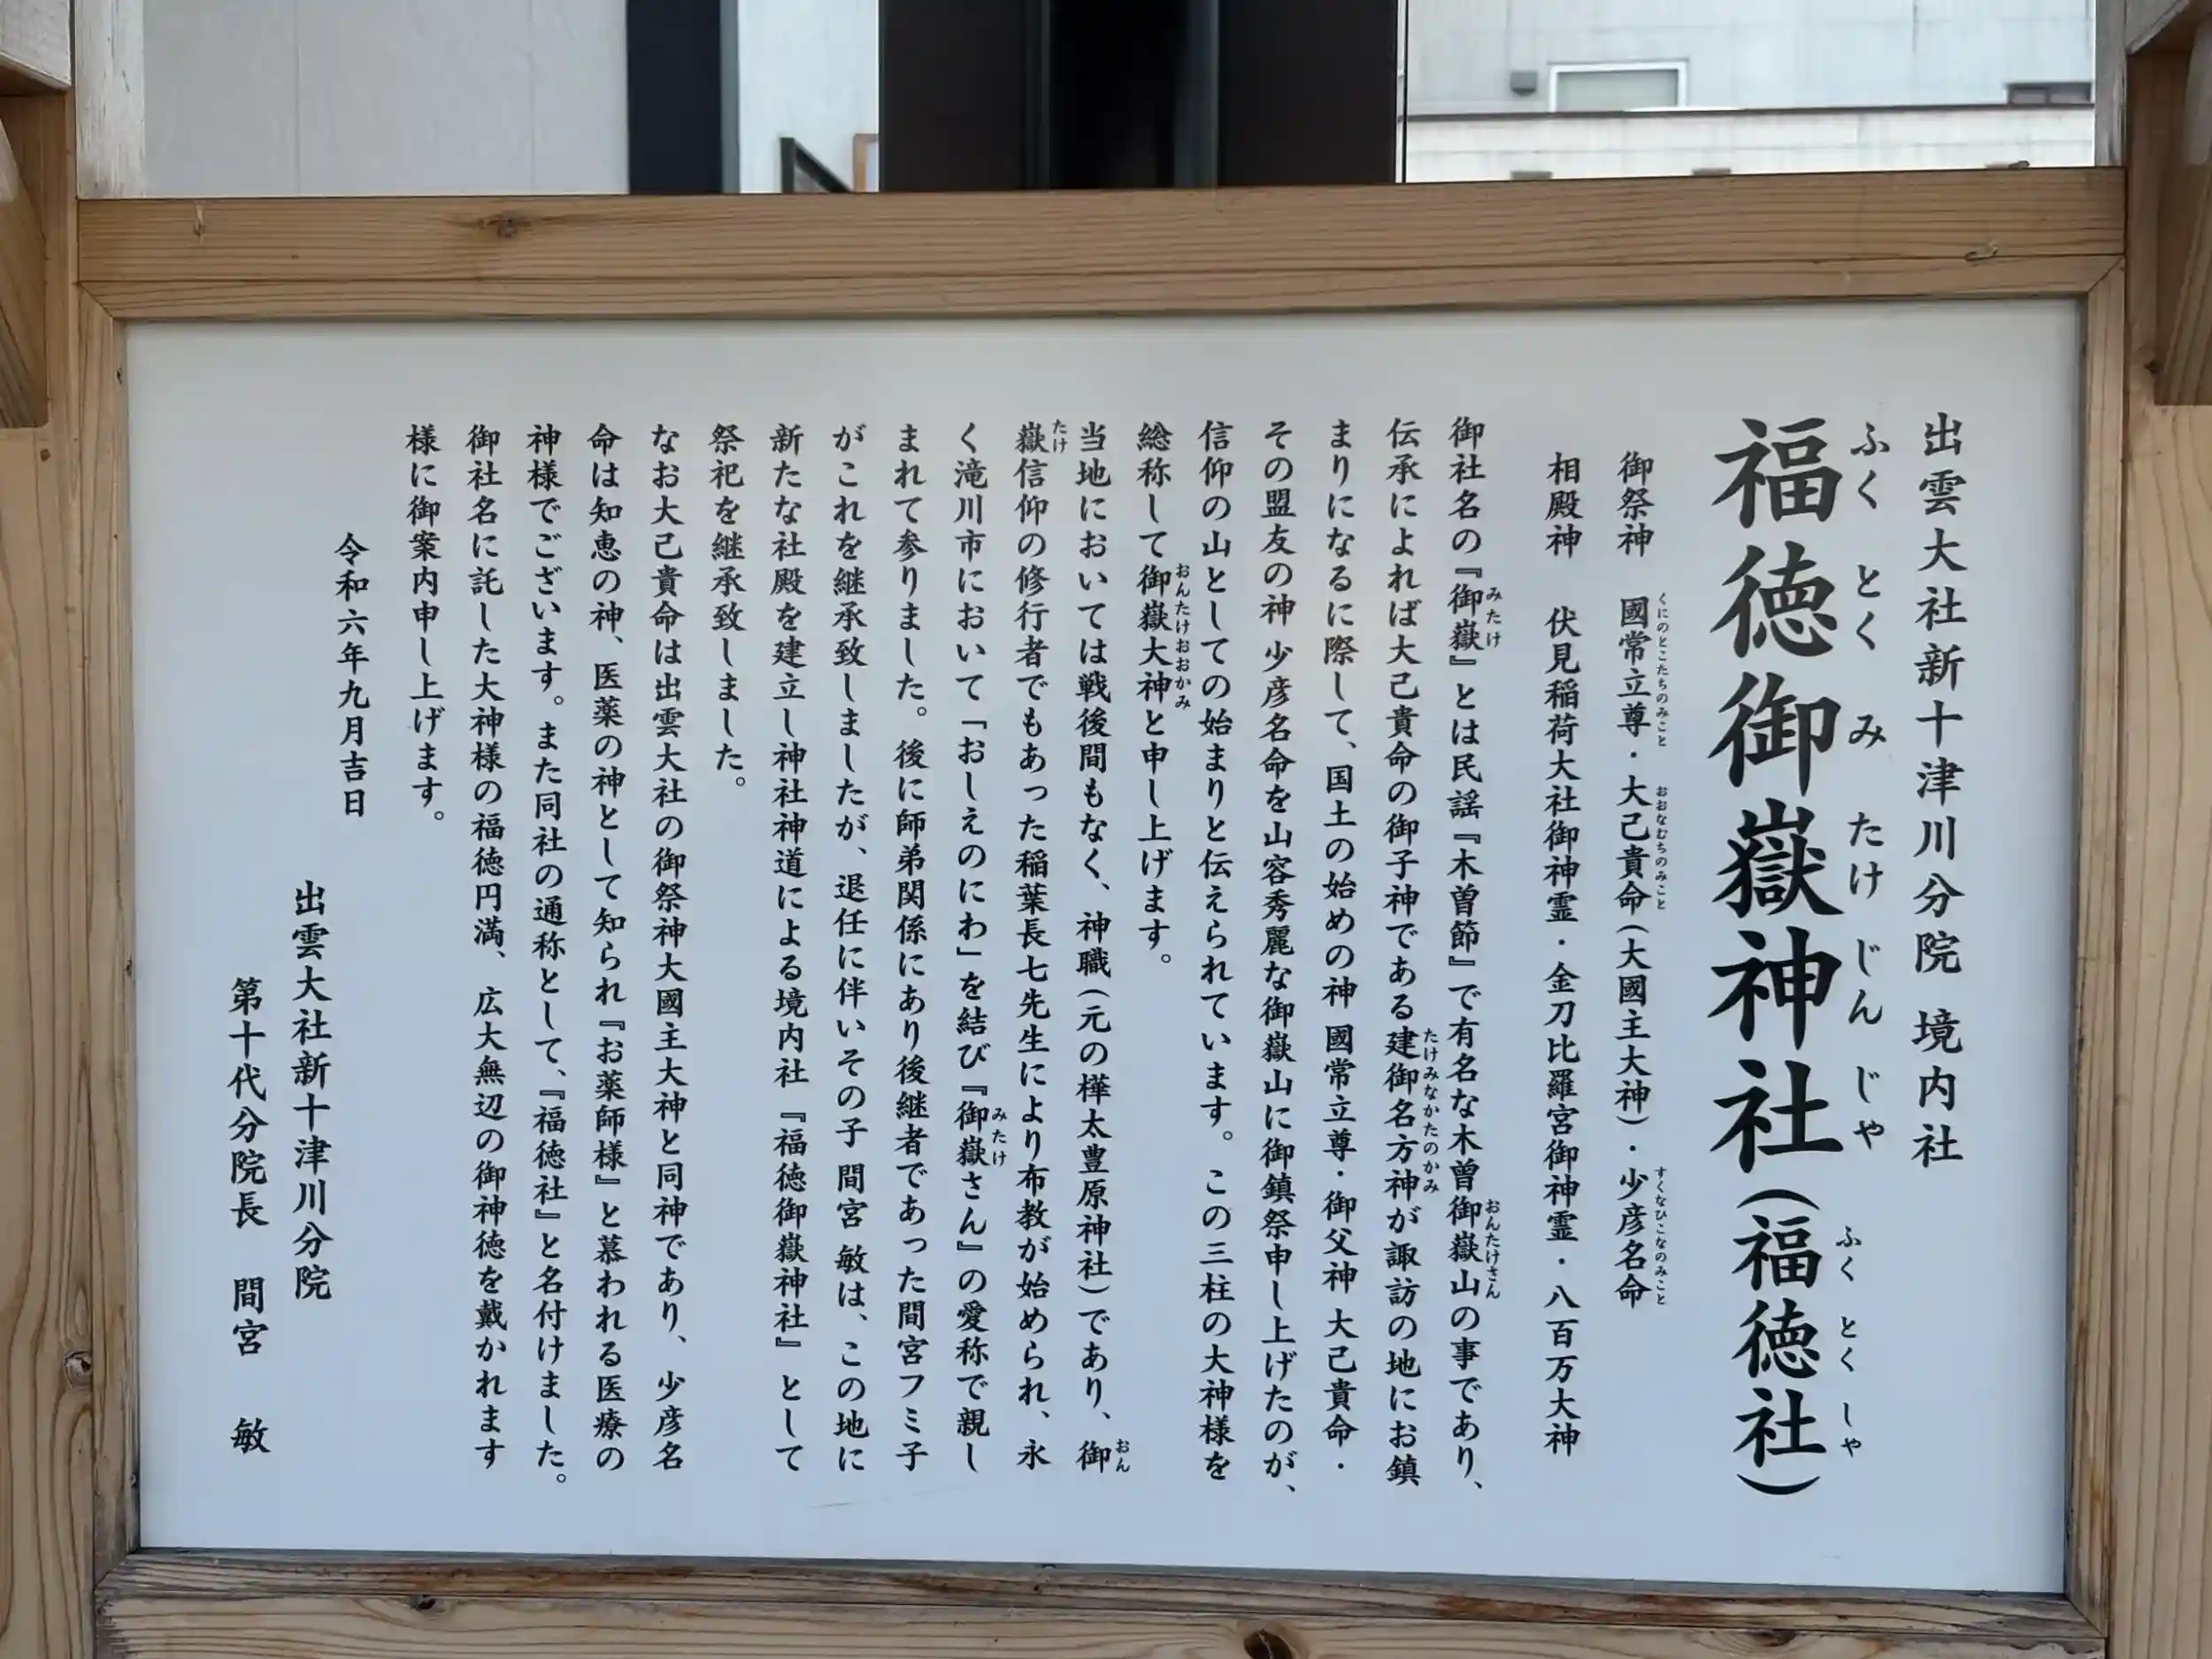 出雲大社新十津川分院 境内社
福徳御嶽神社(福徳社)
ふくとくみたけじんじゃ ふくとくしゃ
御祭神 國常立尊・大己貴命(大國主大神)・少彦名命
くにのとこたちのみこと おおなむちのみこと すくなひこなのみこと
相殿神 伏見稲荷大社御神霊・金刀比羅宮御神霊・八百万大神
御社名の『御嶽』とは民謡『木曽節』で有名な木曽御嶽山の事であり、
みたけ おんたけさん
伝承によれば大己貴命の御子神である建御名方神が諏訪の地にお鎮
たけみなかたのかみ
まりになるに際して、国土の始めの神 國常立尊・御父神 大己貴命・
その盟友の神 少彦名命を山容秀麗な御嶽山に御鎮祭申し上げたのが、
信仰の山としての始まりと伝えられています。この三柱の大神様を
総称して御嶽大神と申し上げます。
おんたけおおかみ
当地においては戦後間もなく、神職(元の樺太豊原神社)であり、御
おん
嶽信仰の修行者でもあった稲葉長七先生により布教が始められ、永
たけ
く滝川市において「おしえのにわ」を結び『御嶽さん』の愛称で親し
みたけ
まれて参りました。後に師弟関係にあり後継者であった間宮フミ子
がこれを継承致しましたが、退任に伴いその子 間宮 敏は、この地に
新たな社殿を建立し神社神道による境内社『福徳御嶽神社』として
祭祀を継承致しました。
なお大己貴命は出雲大社の御祭神大國主大神と同神であり、少彦名
命は知恵の神、医薬の神として知られ『お薬師様』と慕われる医療の
神様でございます。また同社の通称として、『福徳社』と名付けました。
御社名に託した大神様の福徳円満、広大無辺の御神徳を戴かれます
様に御案内申し上げます。
令和六年九月吉日
出雲大社新十津川分院
第十代分院長 間宮 敏